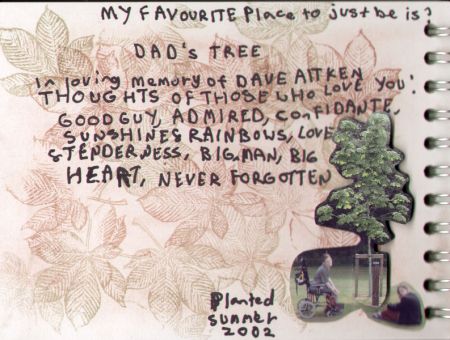 MY FAVOURITE Place to just be is?
DAD's TREE
In loving memory of DAVE AITKEN
THOUGHTS OF THOSE WHO LOVE YOU:
GOOD GUY, ADMIRED, CONFIDANTE,
SUNSHINES RAINBOWS, LOVE
STENDERNESS, BIG.MAN, BIG
HEART, NEVER FORGOTTEN
Planted
summer
2002